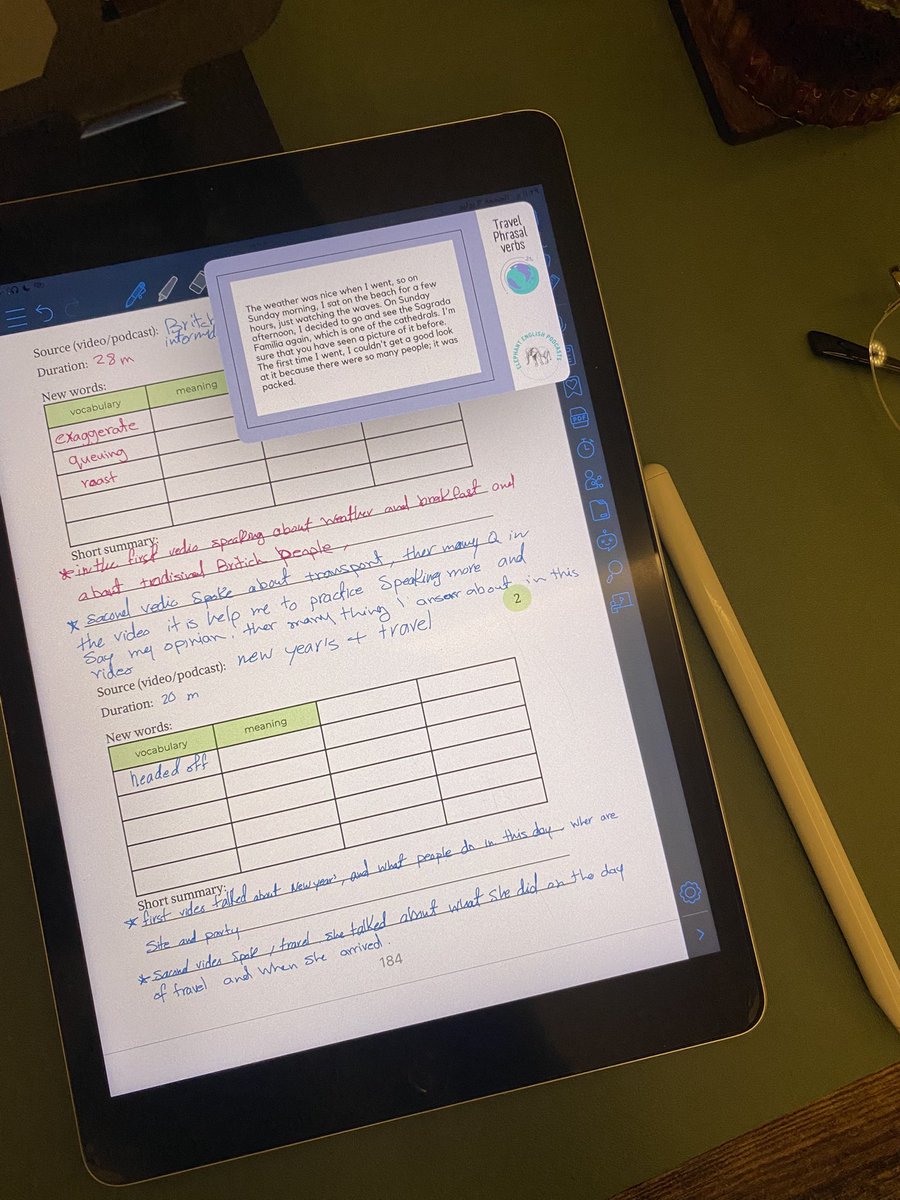 Source (video/podcast): Britch
Duration: 28 m
New words:
vocabulary meaning
exaggerate
queuing
roast
Short summary:
* in the first vedio speaking about weather and breakfast and
about tradisinal Britich people,
* Second vedio spoke about transport, ther many Q in
the video it is help me to practice speaking more and
Say my opinion. ther many thing I answer about in this
video
2
Source (video/podcast): new year's + travel
Duration: 20 m
New words:
vocabulary meaning
headed off
Short summary:
* first video talked about New years, and what people do in this day, wher are
Site and party
* Second video spok, travel she talked about what she did on the day
of travel and when she arrived.
184
The weather was nice when I went, so on
Sunday morning, I sat on the beach for a few
hours, just watching the waves. On Sunday
afternoon, I decided to go and see the Sagrada
Familia again, which is one of the cathedrals. I'm
sure that you have seen a picture of it before.
The first time I went, I couldn't get a good look
at it because there were so many people; it was
packed.
Travel
Phrasal
verbs
ELEPHANT ENGLISH PODCASTS
PDF